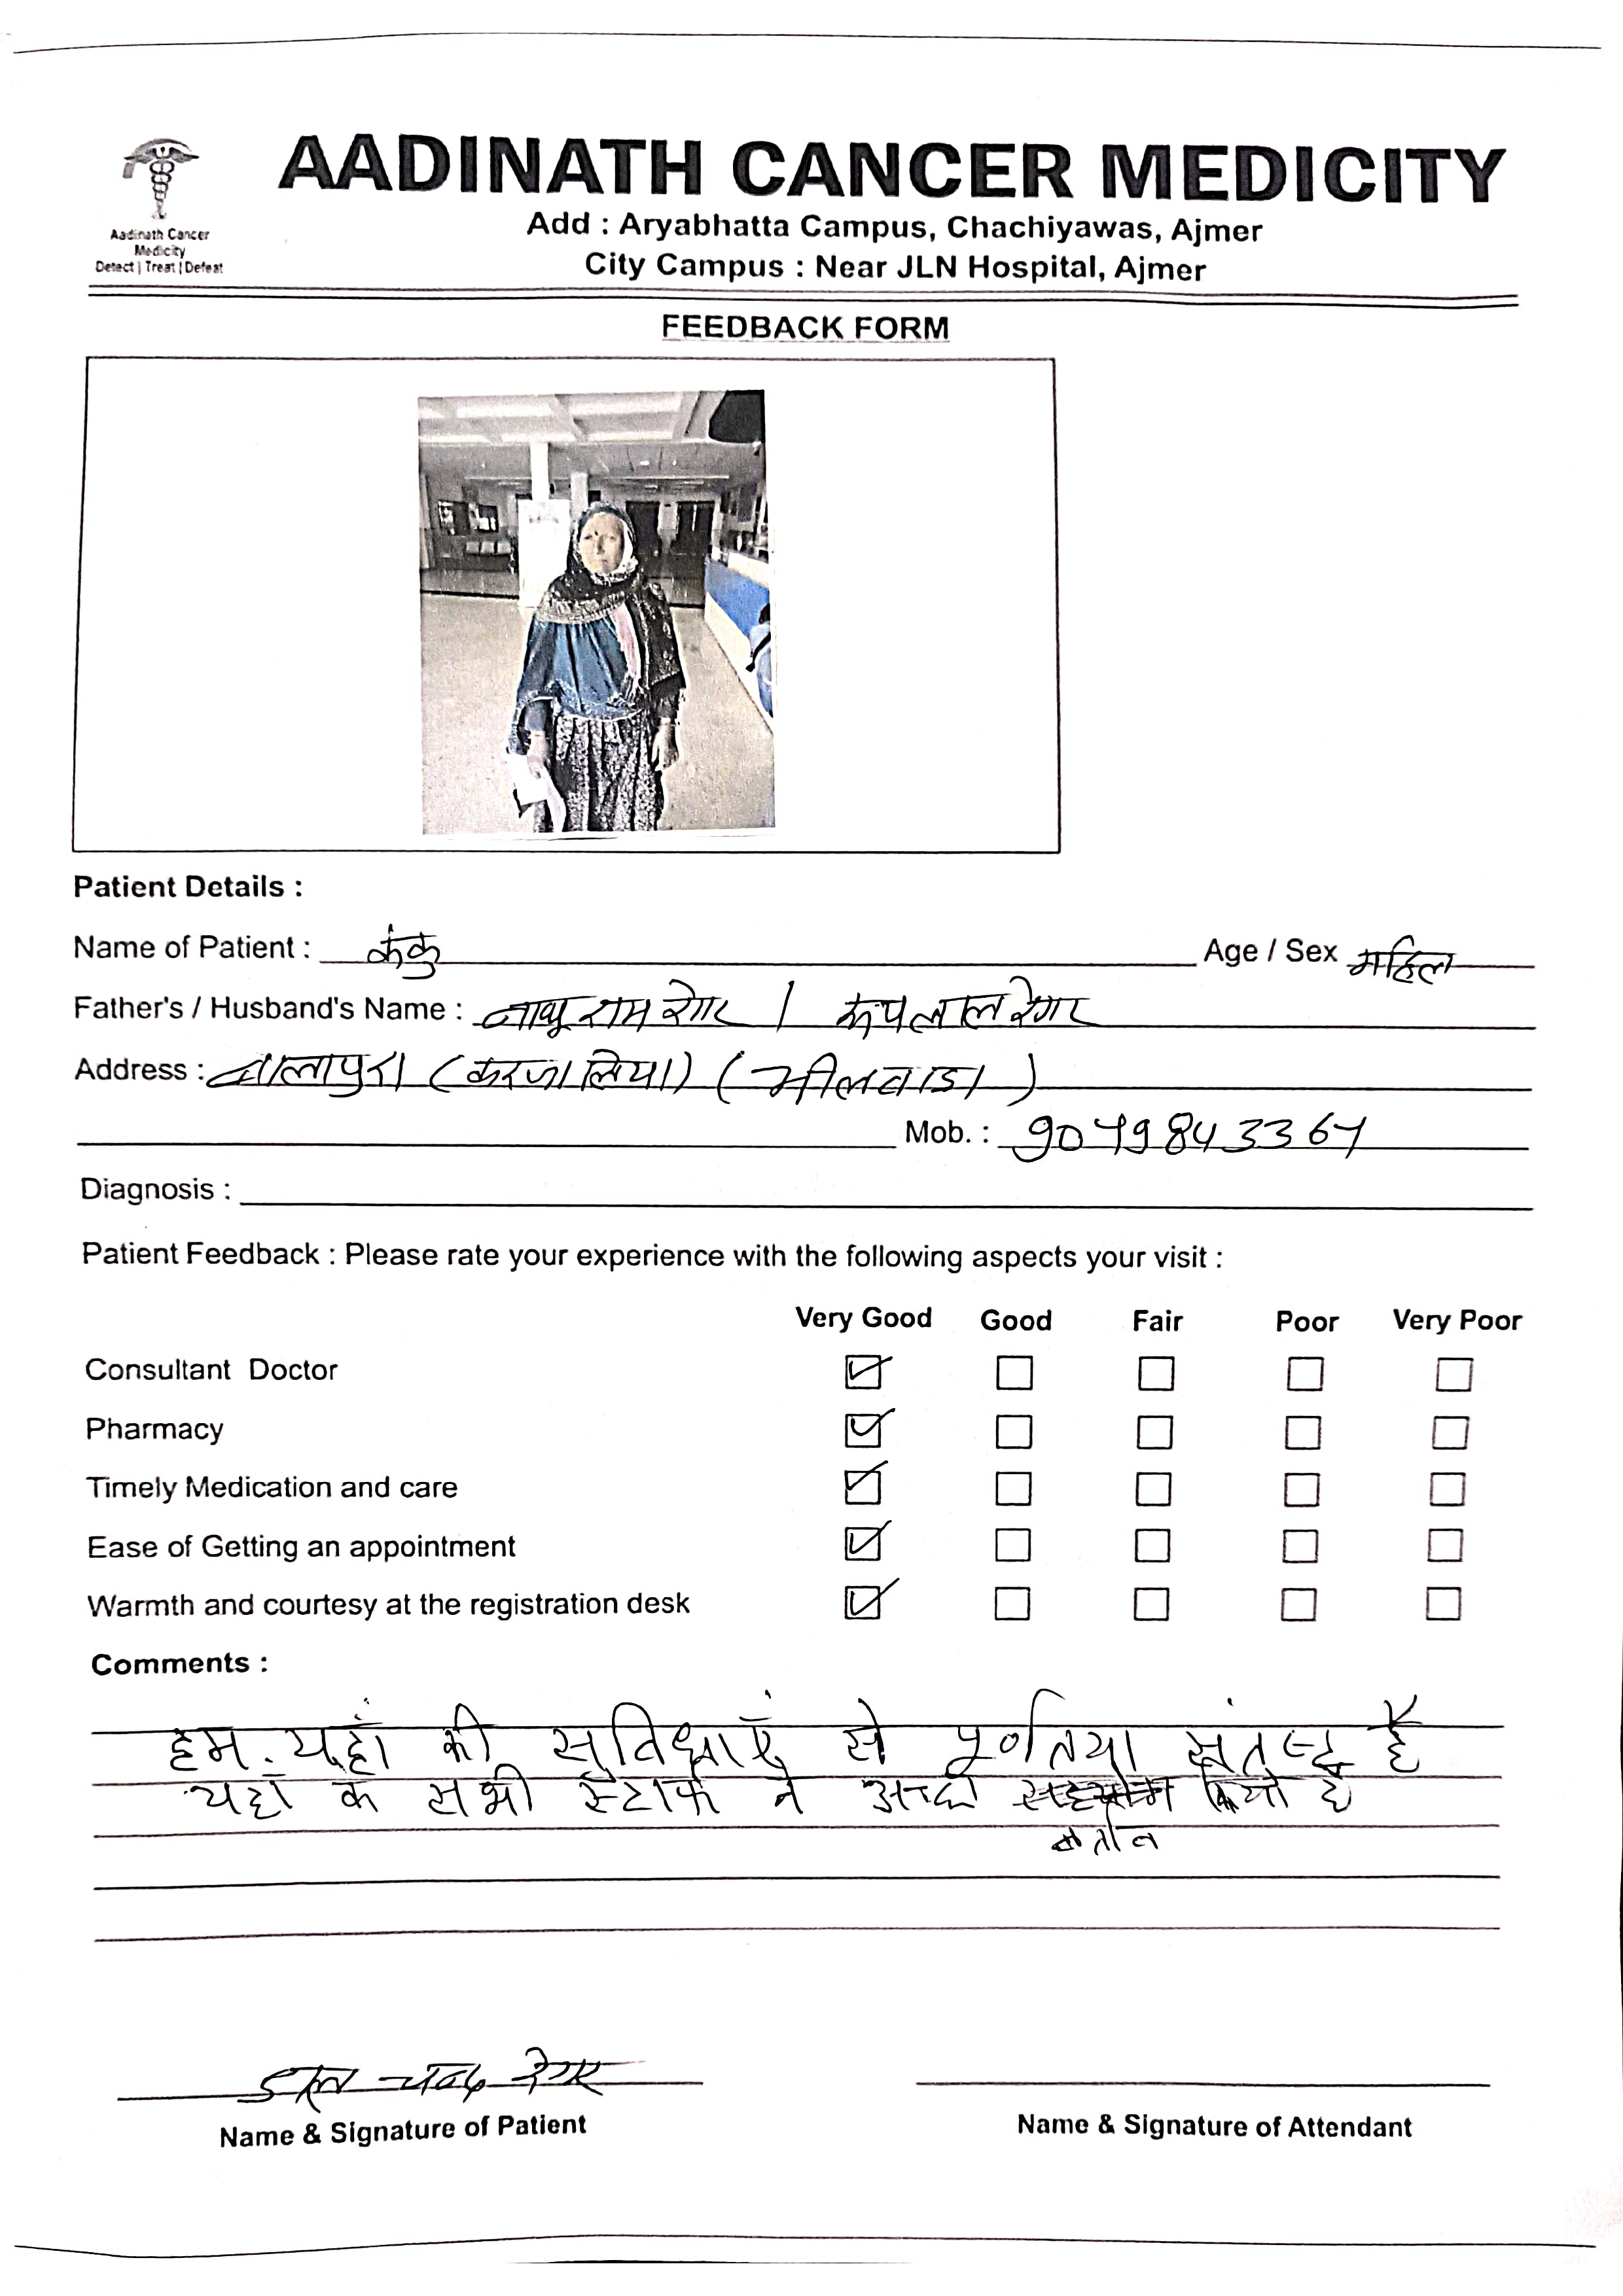 AADINATH CANCER MEDICITY
Aadinath Cancer
Medicity
Detect | Treat | Defeat
Add : Aryabhatta Campus, Chachiyawas, Ajmer
City Campus : Near JLN Hospital, Ajmer
FEEDBACK FORM
Patient Details :
Name of Patient : कंकु Age / Sex महिला
Father's / Husband's Name : नाथु राम रेगर / रूपलाल रेगर
Address : बालापुरा (करजालिया) (भीलवाडा)
Mob. :
Diagnosis :
Patient Feedback : Please rate your experience with the following aspects your visit :
Very Good Good Fair Poor Very Poor
Consultant Doctor
Pharmacy
Timely Medication and care
Ease of Getting an appointment
Warmth and courtesy at the registration desk
Comments :
हम यहां की सुविधाएं से पूर्णतया संतुष्ट है
यहां के सभी स्टाफ ने अच्छा किया है
बर्ताव
रेगर
Name & Signature of Patient Name & Signature of Attendant